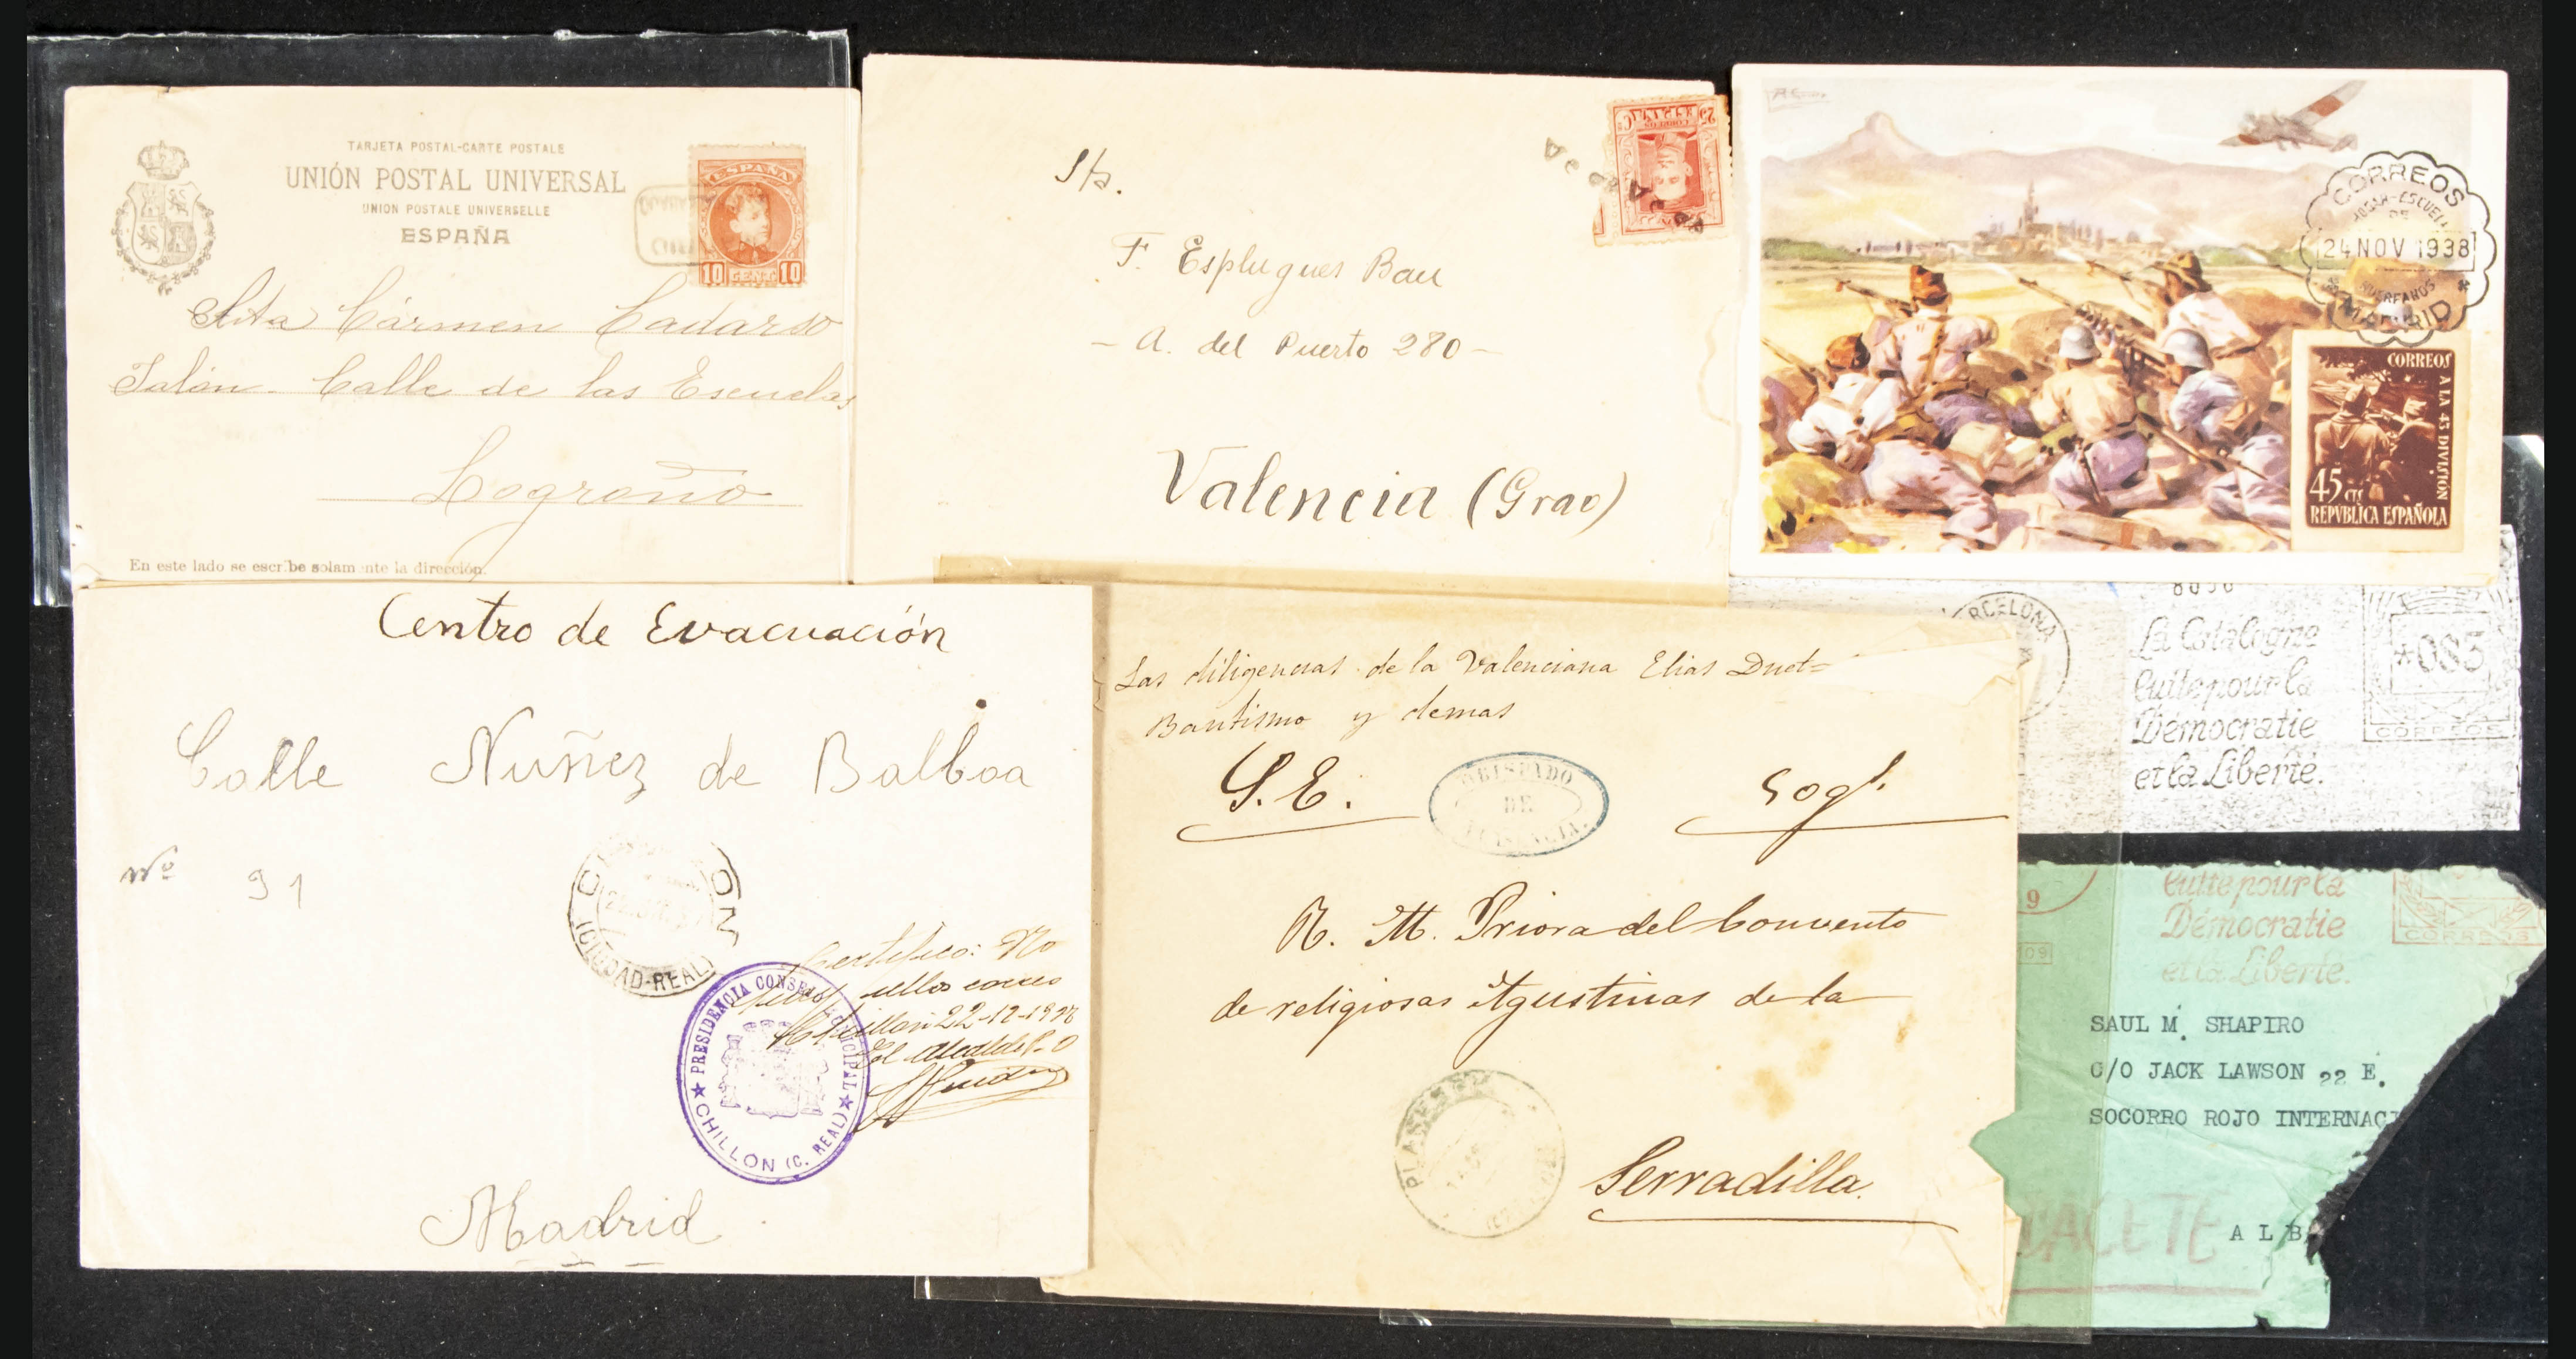 TARJETA POSTAL-CARTE POSTALE
UNIÓN POSTAL UNIVERSAL
UNION POSTALE UNIVERSELLE
ESPAÑA
ESPAÑA
10 CENT. 10
Cármen Cadarso
Salón - Calle de las Escuelas
Logroño
En este lado se escribe solamente la dirección.
25 Cs
CORREOS
ESPAÑA
F. Esplugues Bau
- A. del Puerto 280 -
Valencia (Grao)
CORREOS
HOGAR-ESCUELA
DE
24 NOV 1938
HUERFANOS
MADRID
CORREOS
A LA 43 DIVISIÓN
45 CTS
REPVBLICA ESPAÑOLA
Centro de Evacuación
Calle Nuñez de Balboa
Nº 91
(CIUDAD-REAL)
Certifico: No
sellos correo
Chillón 22-12-1938
El Alcalde
PRESIDENCIA CONSEJO MUNICIPAL
CHILLON (C. REAL)
Madrid
Las diligencias de la Valenciana Elias Duet=
Bautismo y demas
S. E. Gogl.
OBISPADO
DE
PLASENCIA.
R. M. Priora del Convento
de religiosas Agustinas de la
PLASENCIA
Serradilla.
BARCELONA
8030
La Catalogne
lutte pour la
Démocratie
et la Liberté.
*085
CORREOS
9
109
lutte pour la
Démocratie
et la Liberté.
CORREOS
SAUL M. SHAPIRO
C/O JACK LAWSON 22 E.
SOCORRO ROJO INTERNACI
ACETE
ALBA